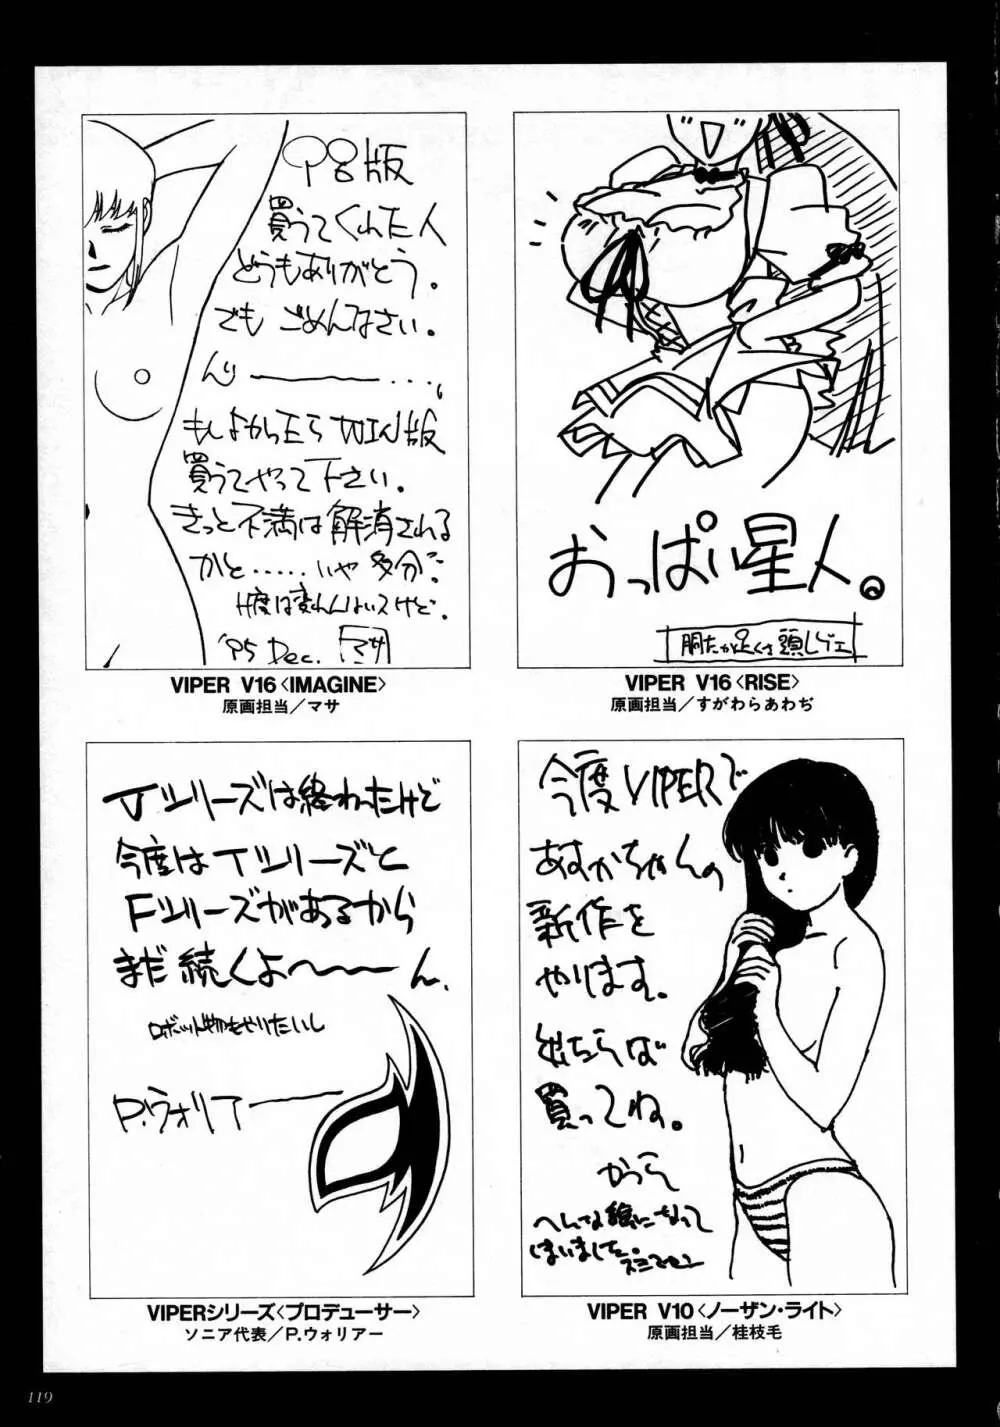 98版
買うてくれた人
どうもありがとう。
でも ごめんなさい。
んじ ――― ...、
もしよかったら WIN版
買うてやって下さい。
きっと不満は解消される
かと……いや 多分
H度は変わんないスけど。
'95 Dec. マサ
VIPER V16〈IMAGINE〉
原画担当／マサ
おっぱい星人。
VIPER V16〈RISE〉
原画担当／すがわらあわぢ
Vシリーズは終わったけど
今度はTシリーズと
Fシリーズがあるから
まだ続くよ〜――ん、
ロボット物もやりたいし
P.ウォリアー
VIPERシリーズ〈プロデューサー〉
ソニア代表／P.ウォリアー
今度VIPERで
あすかちゃんの
新作を
やります。
出たらば
買ってね。
かつら
へんな絵になって
しまいました。スミマセン
VIPER V10〈ノーザン・ライト〉
原画担当／桂枝毛
119